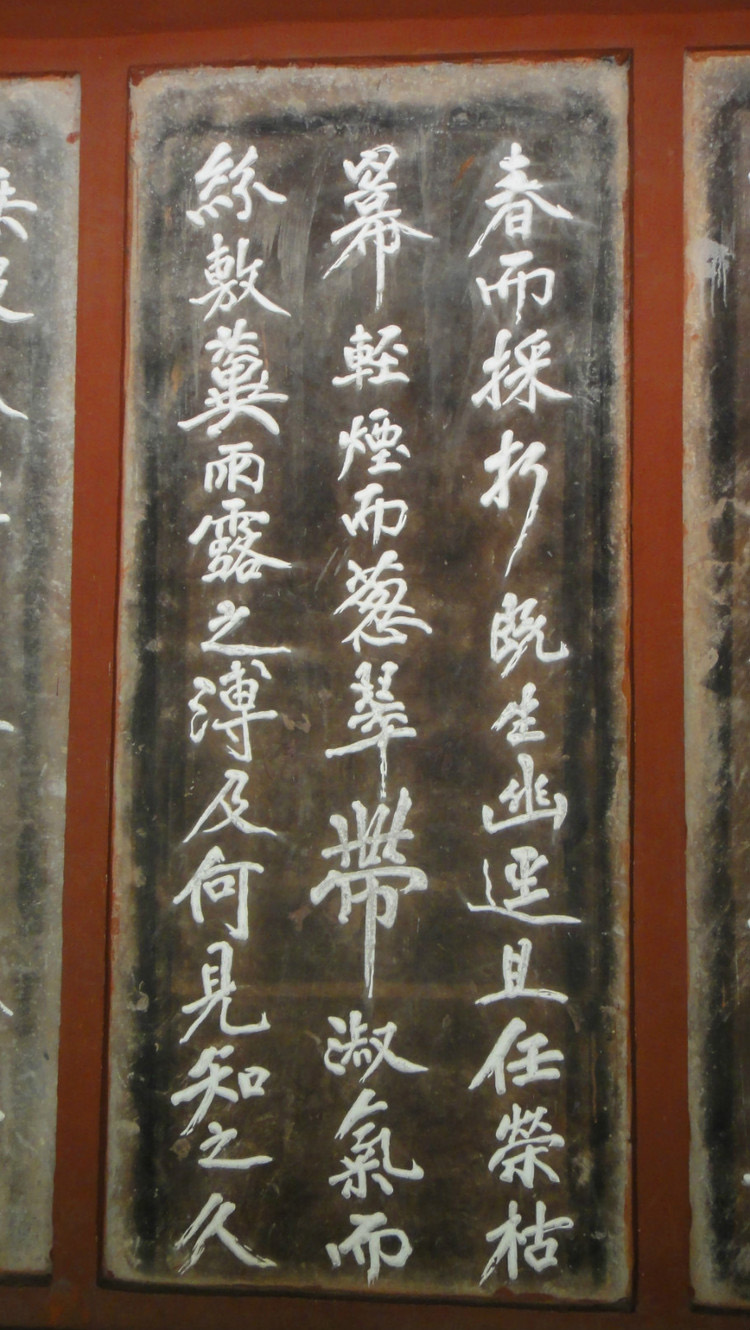 春而採折既生幽逕且任榮枯
羃輕煙而葱翠帶淑氣而
紛敷冀雨露之溥及何見知之久